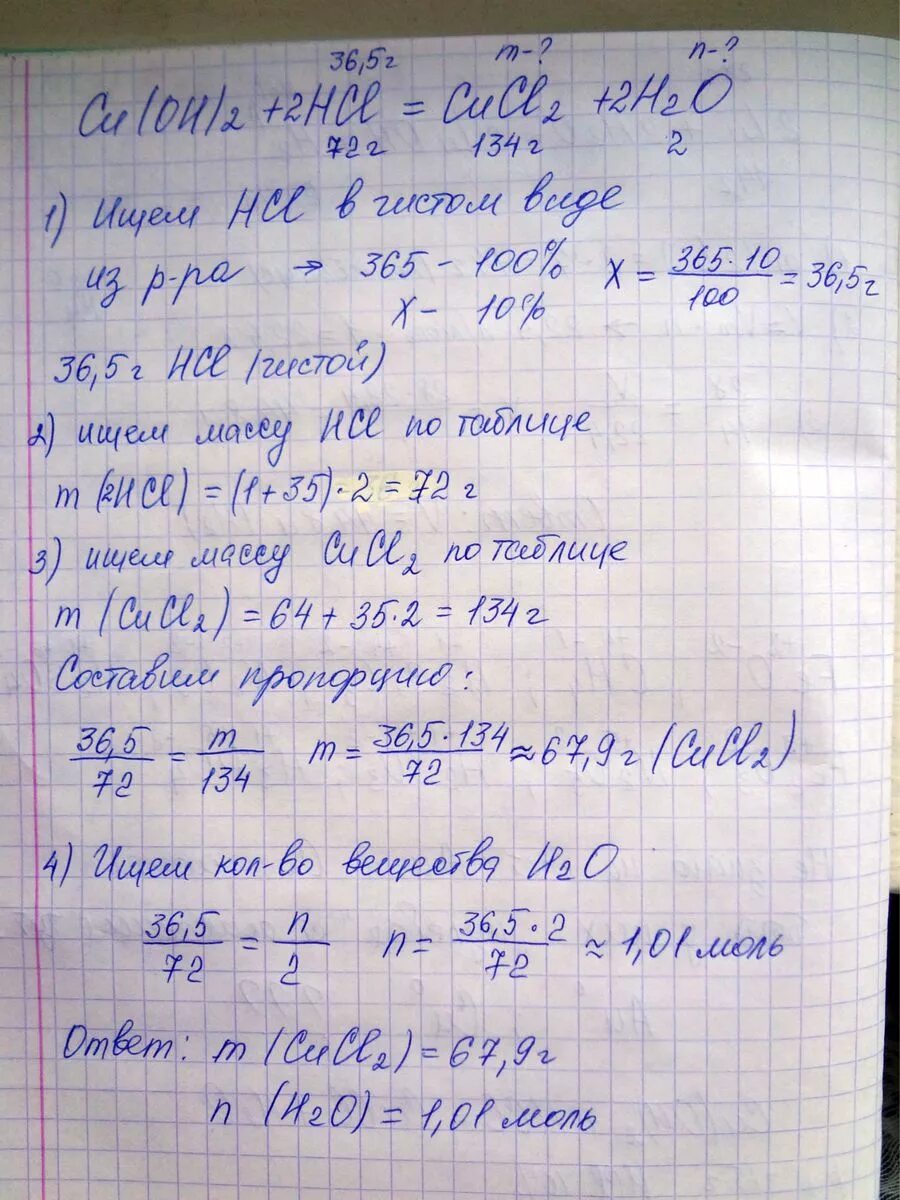 36,5г m-? n-?
Cu(OH)2 + 2HCl = CuCl2 + 2H2O
72г 134г 2
1) Ищем HCl в чистом виде
из р-ра → 365 - 100% X = 365·10/100 = 36,5г
X - 10%
36,5г HCl (чистой)
2) ищем массу HCl по таблице
m (2HCl) = (1+35)·2 = 72 г
3) ищем массу CuCl2 по таблице
m (CuCl2) = 64 + 35·2 = 134г
Составим пропорцию:
36,5/72 = m/134 m = 36,5·134/72 ≈ 67,9г (CuCl2)
4) Ищем кол-во вещества H2O
36,5/72 = n/2 n = 36,5·2/72 ≈ 1,01 моль
Ответ: m (CuCl2) = 67,9г
n (H2O) = 1,01 моль